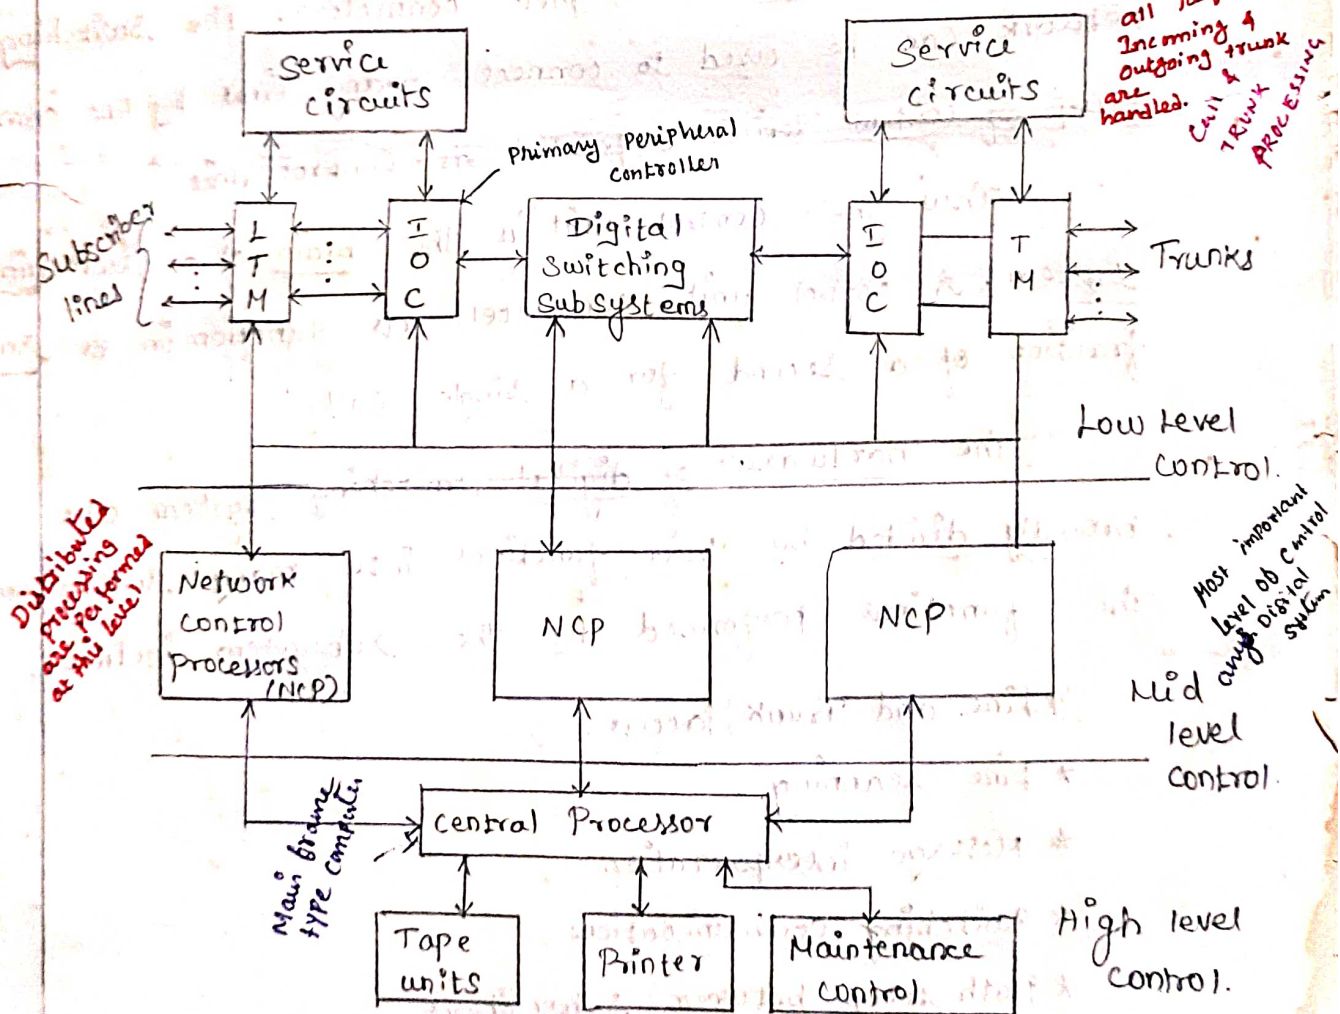 Service
circuits
Service
circuits
all
Incoming &
outgoing trunk
are
handled.
Call &
TRUNK
PROCESSING
Primary Peripheral
controller
Subscriber
lines
L
T
M
I
O
C
Digital
Switching
Subsystems
I
O
C
T
M
Trunks
Low Level
control.
Distributed
processing
are performed
at this level
Network
control
processors
(NCP)
NCP
NCP
Most important
level of control
any Digital
system
Mid
level
control.
Main frame
type computer
central Processor
Tape
units
Printer
Maintenance
control
High level
control.